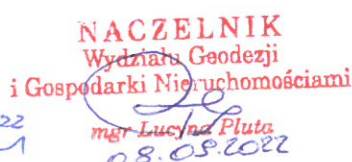 NACZELNIK
Wydziału Geodezji
i Gospodarki Nieruchomościami
mgr Lucyna Pluta
22
08.09.2022